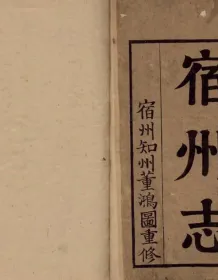 宿州志
宿州知州董鴻圖重修